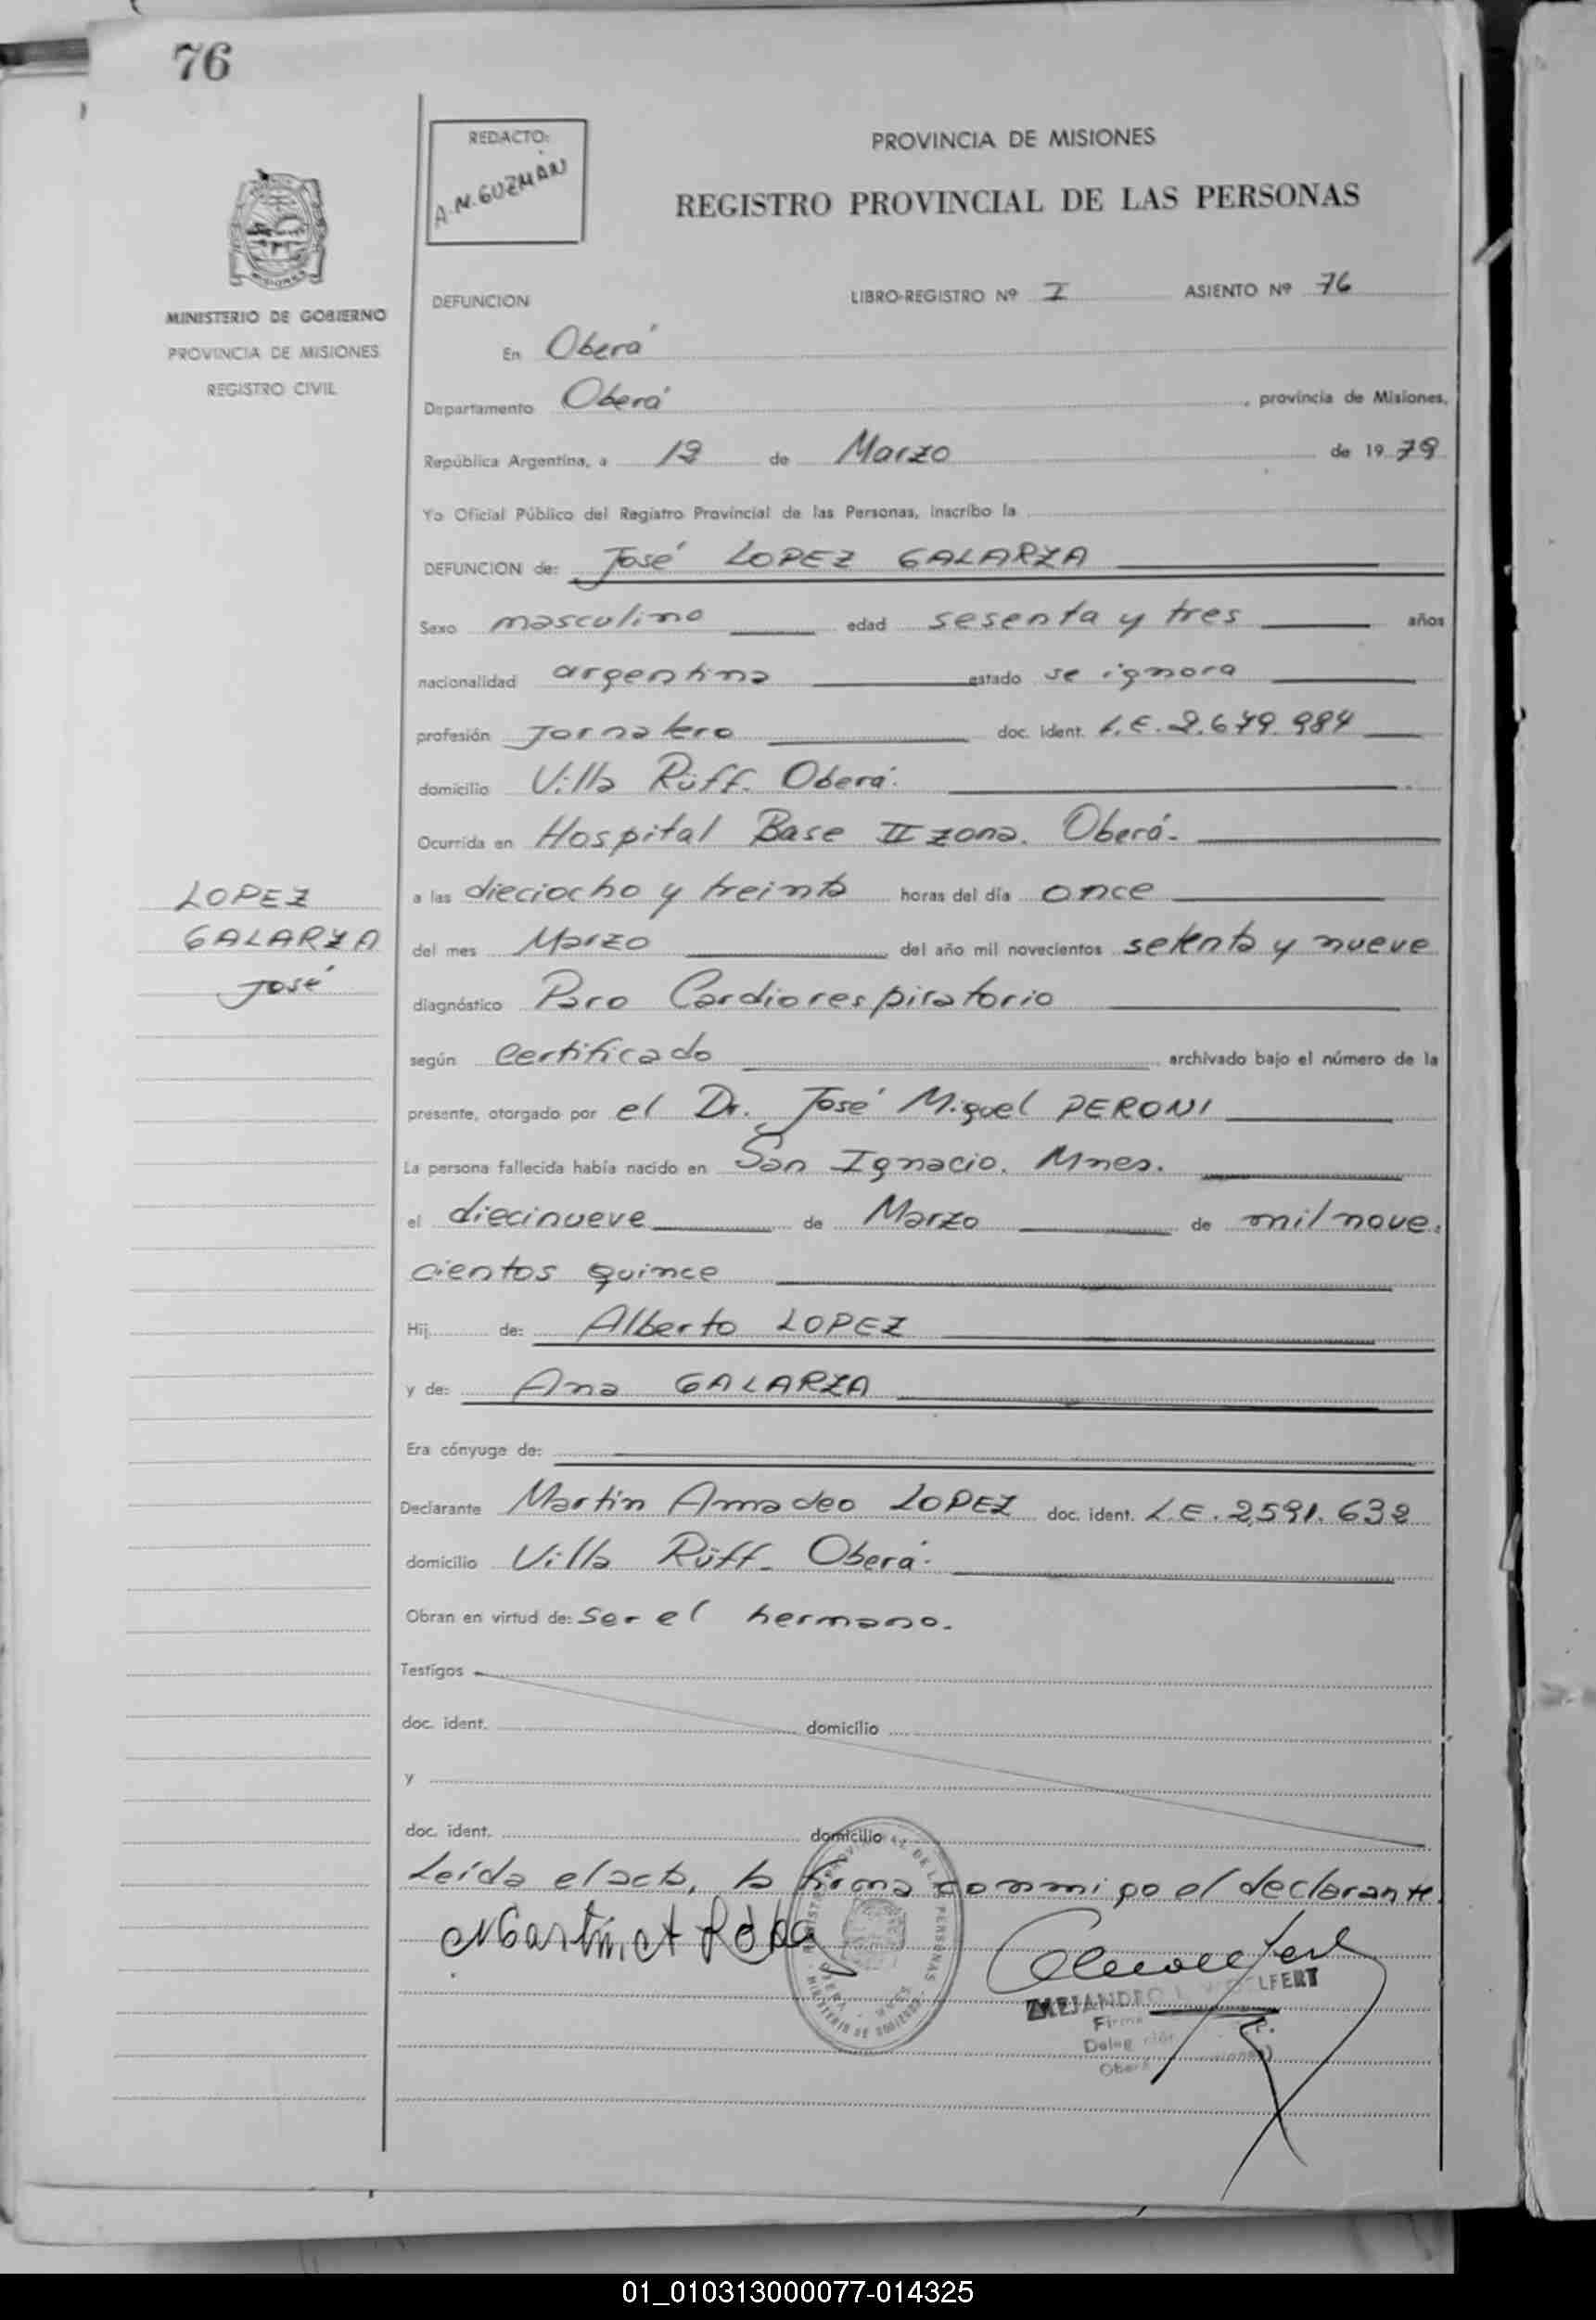 76
REDACTO:
A.N. GUZMÁN
PROVINCIA DE MISIONES
REGISTRO PROVINCIAL DE LAS PERSONAS
MISIONES
MINISTERIO DE GOBIERNO
PROVINCIA DE MISIONES
REGISTRO CIVIL
DEFUNCION LIBRO-REGISTRO Nº I ASIENTO Nº 76
En Oberá
Departamento Oberá , provincia de Misiones,
República Argentina, a 12 de Marzo de 1979
Yo Oficial Público del Registro Provincial de las Personas, inscribo la
DEFUNCION de: José LOPEZ GALARZA
Sexo masculino edad sesenta y tres años
nacionalidad argentina estado se ignora
profesión Jornalero doc. ident. L.E. 2.679.984
domicilio Villa Rüff. Oberá.
Ocurrida en Hospital Base II zona. Oberá.
a las dieciocho y treinta horas del día once
del mes Marzo del año mil novecientos setenta y nueve
diagnóstico Paro Cardiorespiratorio
según Certificado archivado bajo el número de la
presente, otorgado por el Dr. José Miguel PERONI
La persona fallecida había nacido en San Ignacio. Mnes.
el diecinueve de Marzo de mil nove.
cientos quince
Hij de: Alberto LOPEZ
y de: Ana GALARZA
Era cónyuge de:
Declarante Martín Amadeo LOPEZ doc. ident. L.E. 2,591.632
domicilio Villa Rüff. Oberá.
Obran en virtud de: Ser el hermano.
Testigos
doc. ident. domicilio
y
doc. ident. domicilio
Leída el acta, la firma conmigo el declarante.
LOPEZ
GALARZA
José
01_010313000077-014325